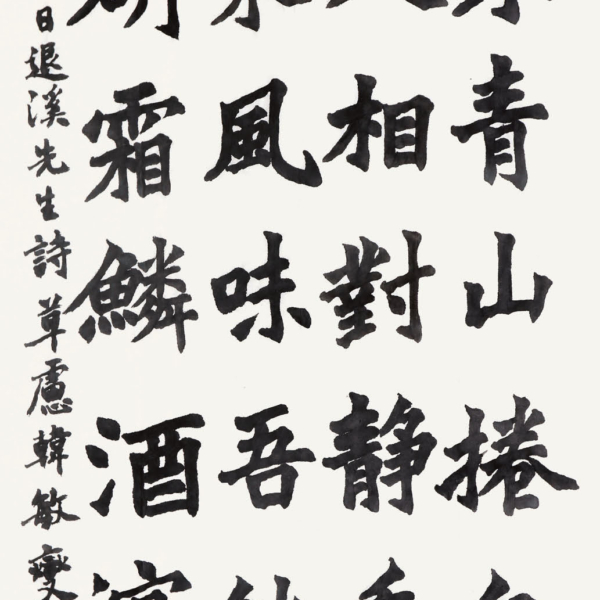 青山捲
相對靜
風味吾
霜鱗酒
日退溪先生詩草廬韓敏燮